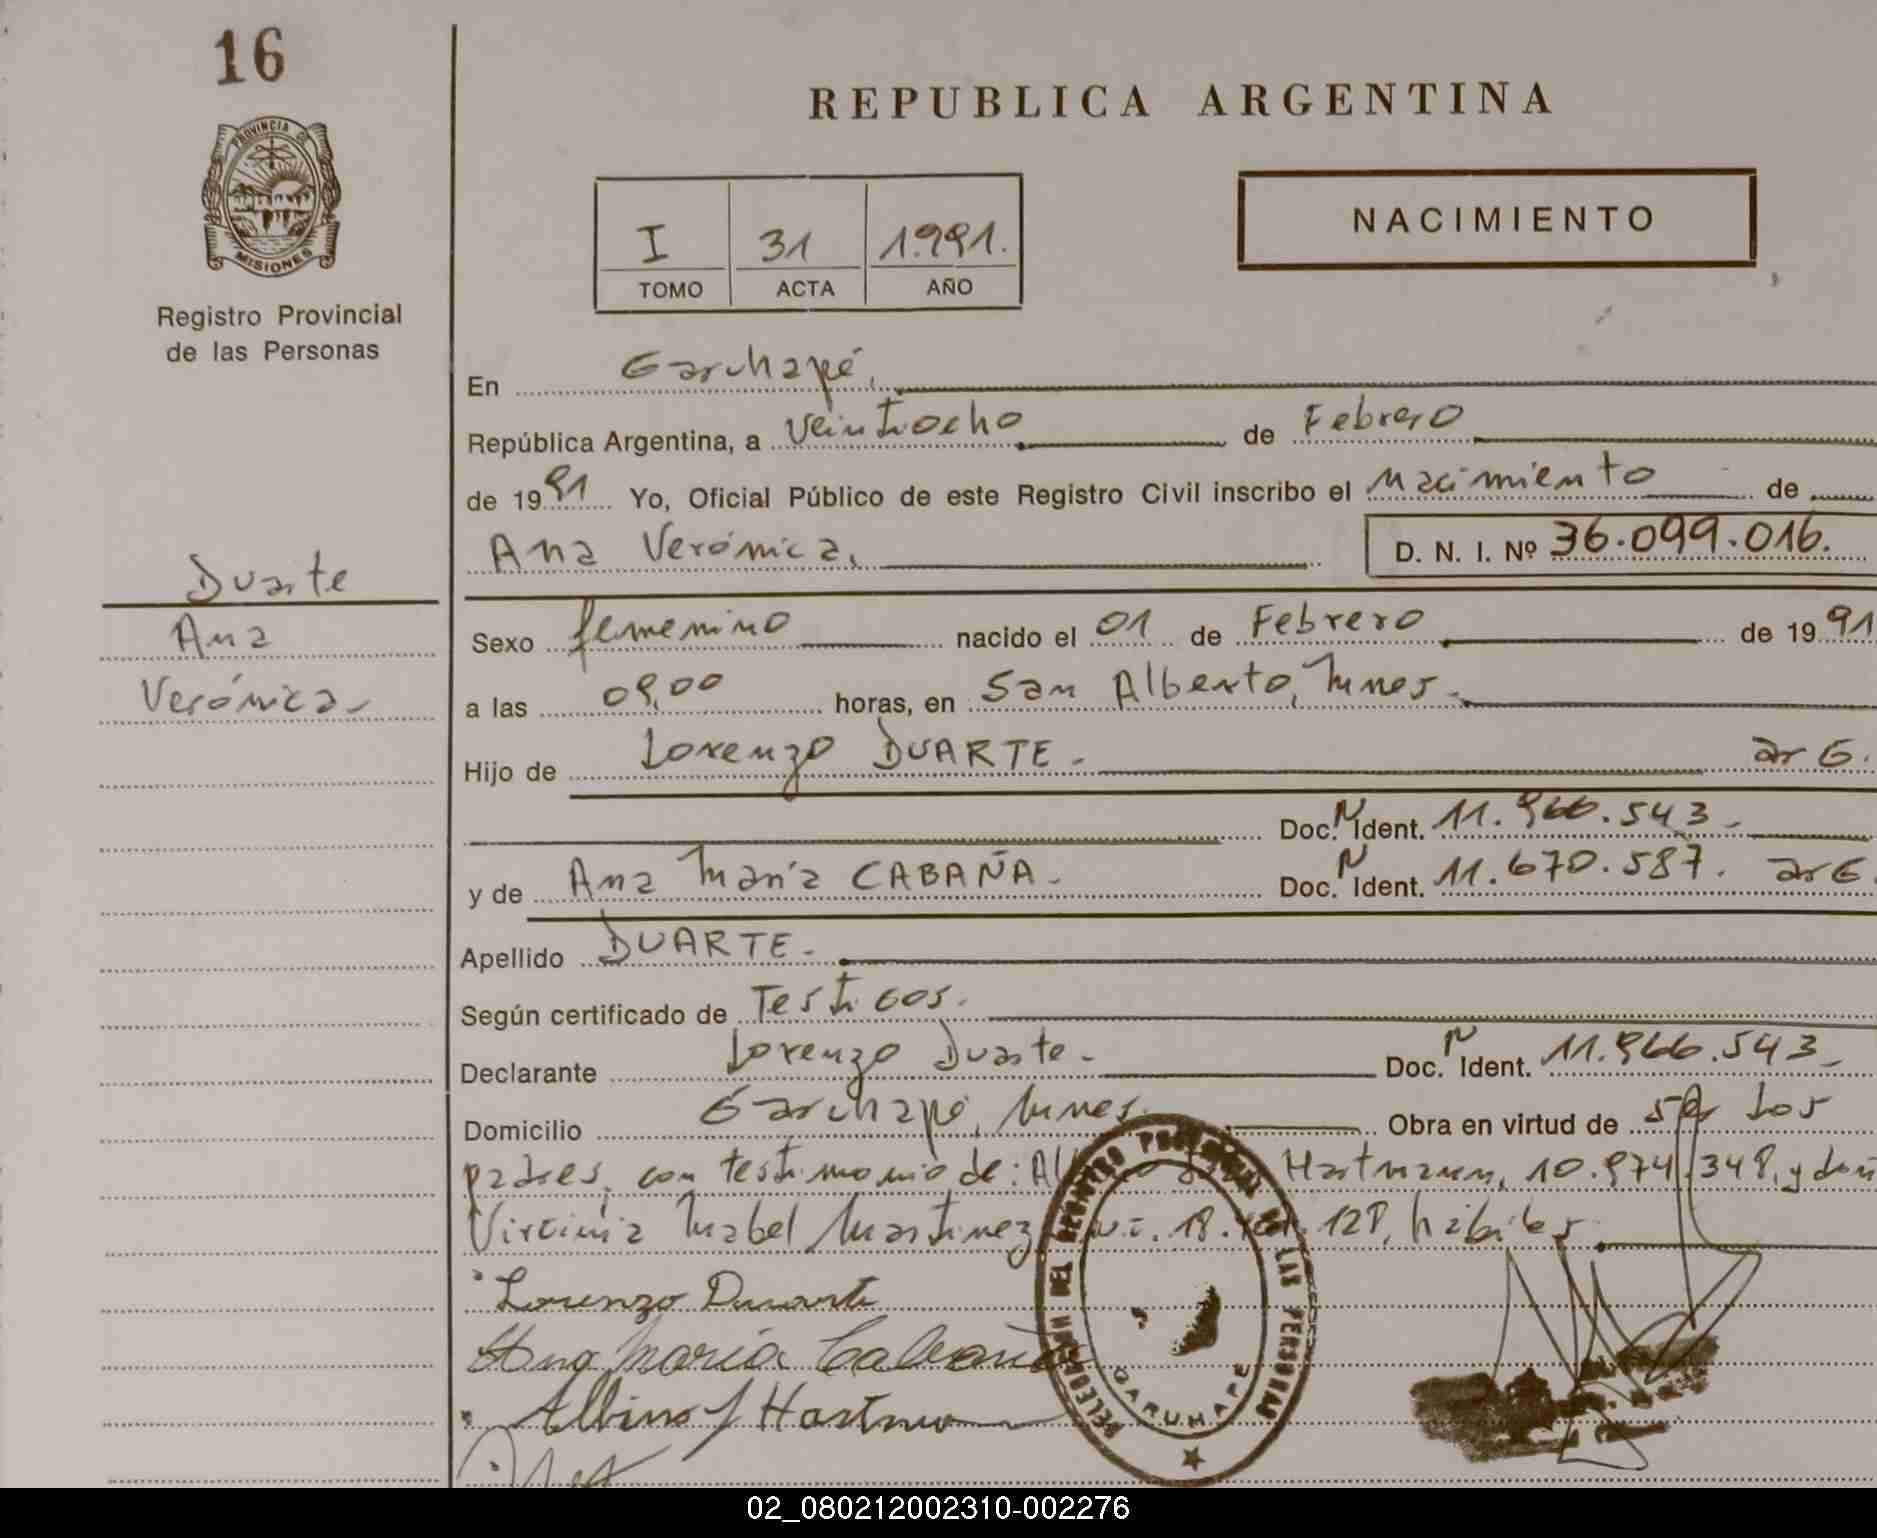 16
REPUBLICA ARGENTINA
PROVINCIA DE
MISIONES
Registro Provincial
de las Personas
I 31 1.991.
TOMO ACTA AÑO
NACIMIENTO
En Garuhapé,
República Argentina, a Veintiocho de Febrero
de 1991 Yo, Oficial Público de este Registro Civil inscribo el nacimiento de
Ana Verónica, D. N. I. Nº 36.099.016.
Duarte
Ana
Verónica.
Sexo femenino nacido el 01 de Febrero de 1991
a las 09,00 horas, en San Alberto, Mnes.
Hijo de Lorenzo DUARTE. arg.
Doc. N Ident. 11.966.543.
y de Ana María CABAÑA. Doc. N Ident. 11.670.587. arg.
Apellido DUARTE.
Según certificado de Testigos.
Declarante Lorenzo Duarte. Doc. N Ident. 11.966.543.
Domicilio Garuhapé, Mnes. Obra en virtud de ser los
padres, con testimonio de: Hartmann, 10.974.348, y doña
Virginia Mabel Martinez 18. 128, hábiles.
Lorenzo Duarte
Ana María Cabaña
Albino J Hartman
DELEGACION DEL REGISTRO PROVINCIAL DE LAS PERSONAS
GARUHAPE
02_080212002310-002276